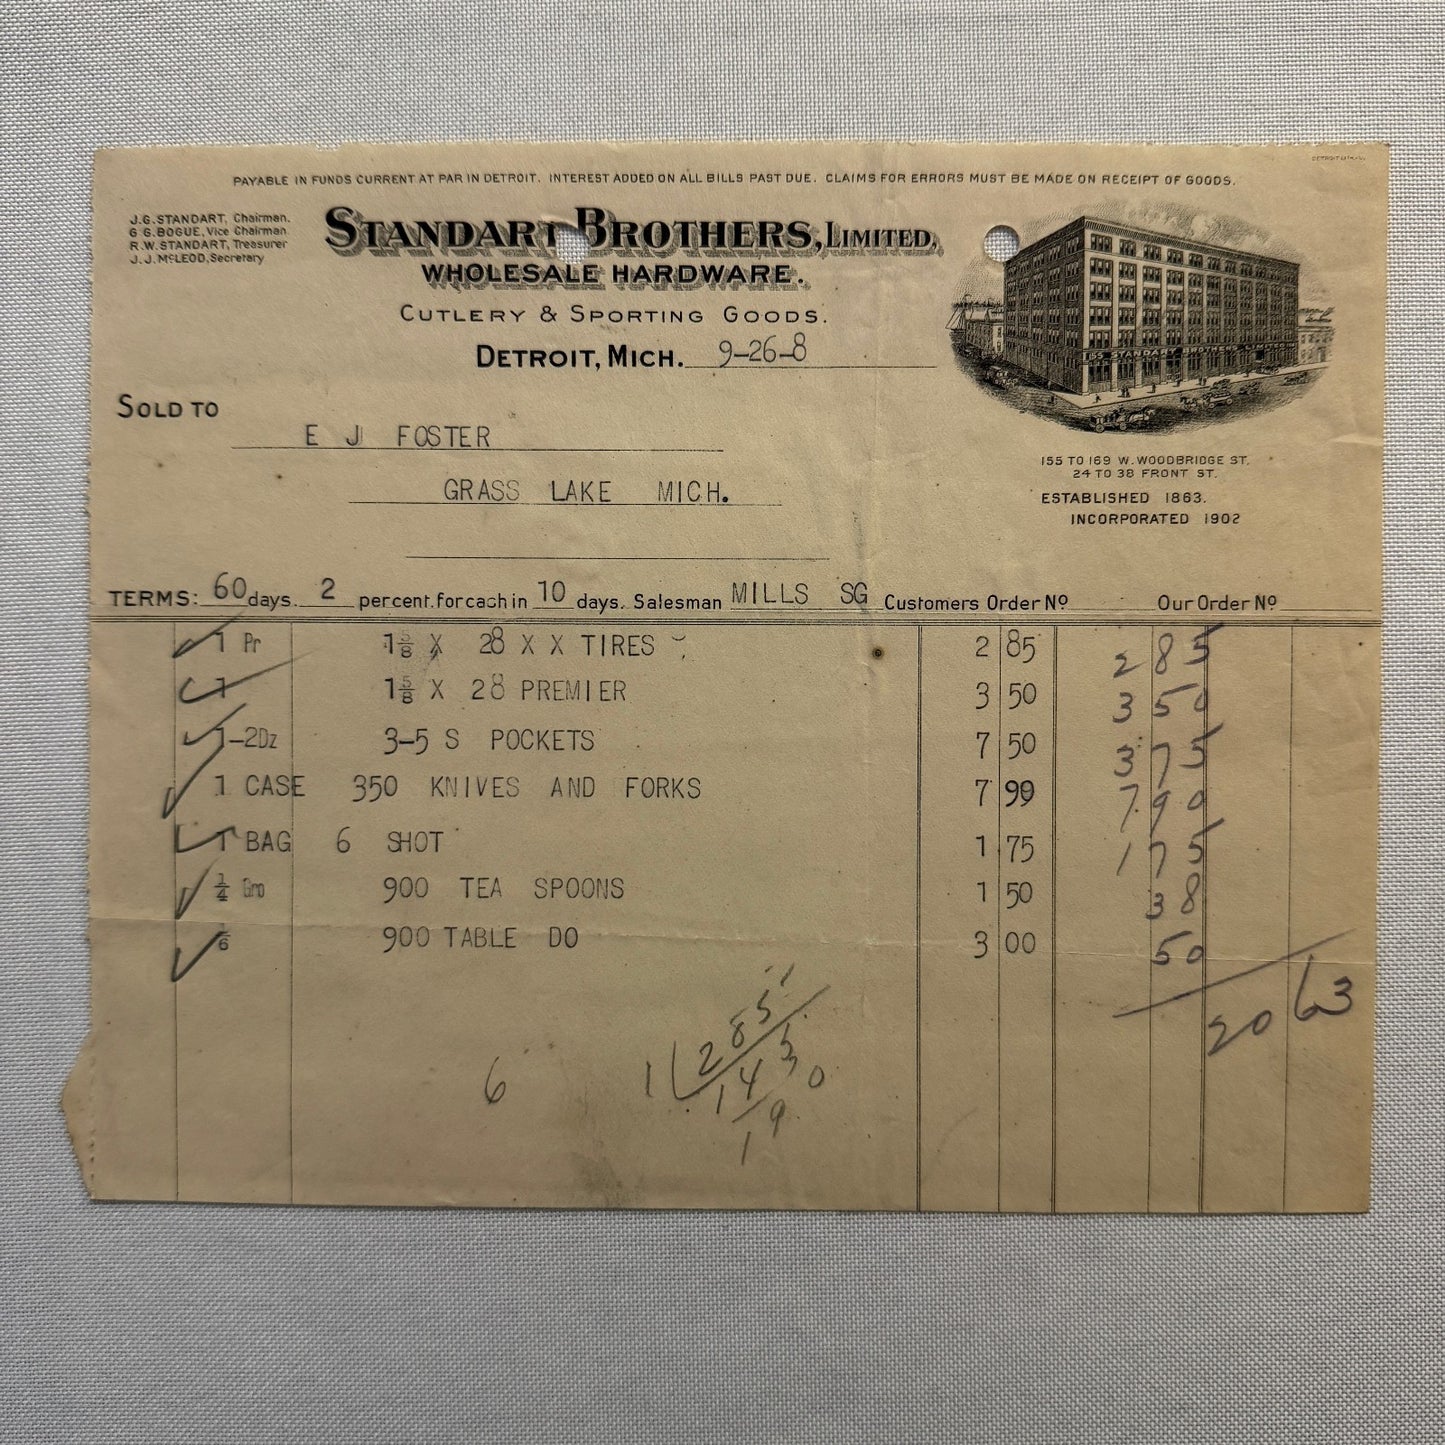 PAYABLE IN FUNDS CURRENT AT PAR IN DETROIT. INTEREST ADDED ON ALL BILLS PAST DUE. CLAIMS FOR ERRORS MUST BE MADE ON RECEIPT OF GOODS.
J.G. STANDART, Chairman.
G G. BOGUE, Vice Chairman.
R.W. STANDART, Treasurer
J. J. McLEOD, Secretary
STANDART BROTHERS, LIMITED,
WHOLESALE HARDWARE.
CUTLERY & SPORTING GOODS.
DETROIT, MICH. 9-26-8
155 TO 169 W. WOODBRIDGE ST.
24 TO 38 FRONT ST.
ESTABLISHED 1863.
INCORPORATED 1902
SOLD TO
E J FOSTER
GRASS LAKE MICH.
TERMS: 60 days. 2 percent. for cash in 10 days. Salesman MILLS SG Customers Order No Our Order No
1 Pr 1 5/8 X 28 X X TIRES 2 85 2 85
1 1 5/8 X 28 PREMIER 3 50 3 50
1-2Dz 3-5 S POCKETS 7 50 3 75
1 CASE 350 KNIVES AND FORKS 7 90 7.90
1 BAG 6 SHOT 1 75 1 75
1/4 Gro 900 TEA SPOONS 1 50 38
6 900 TABLE DO 3 00 50
20 63
6
1 285
143
190